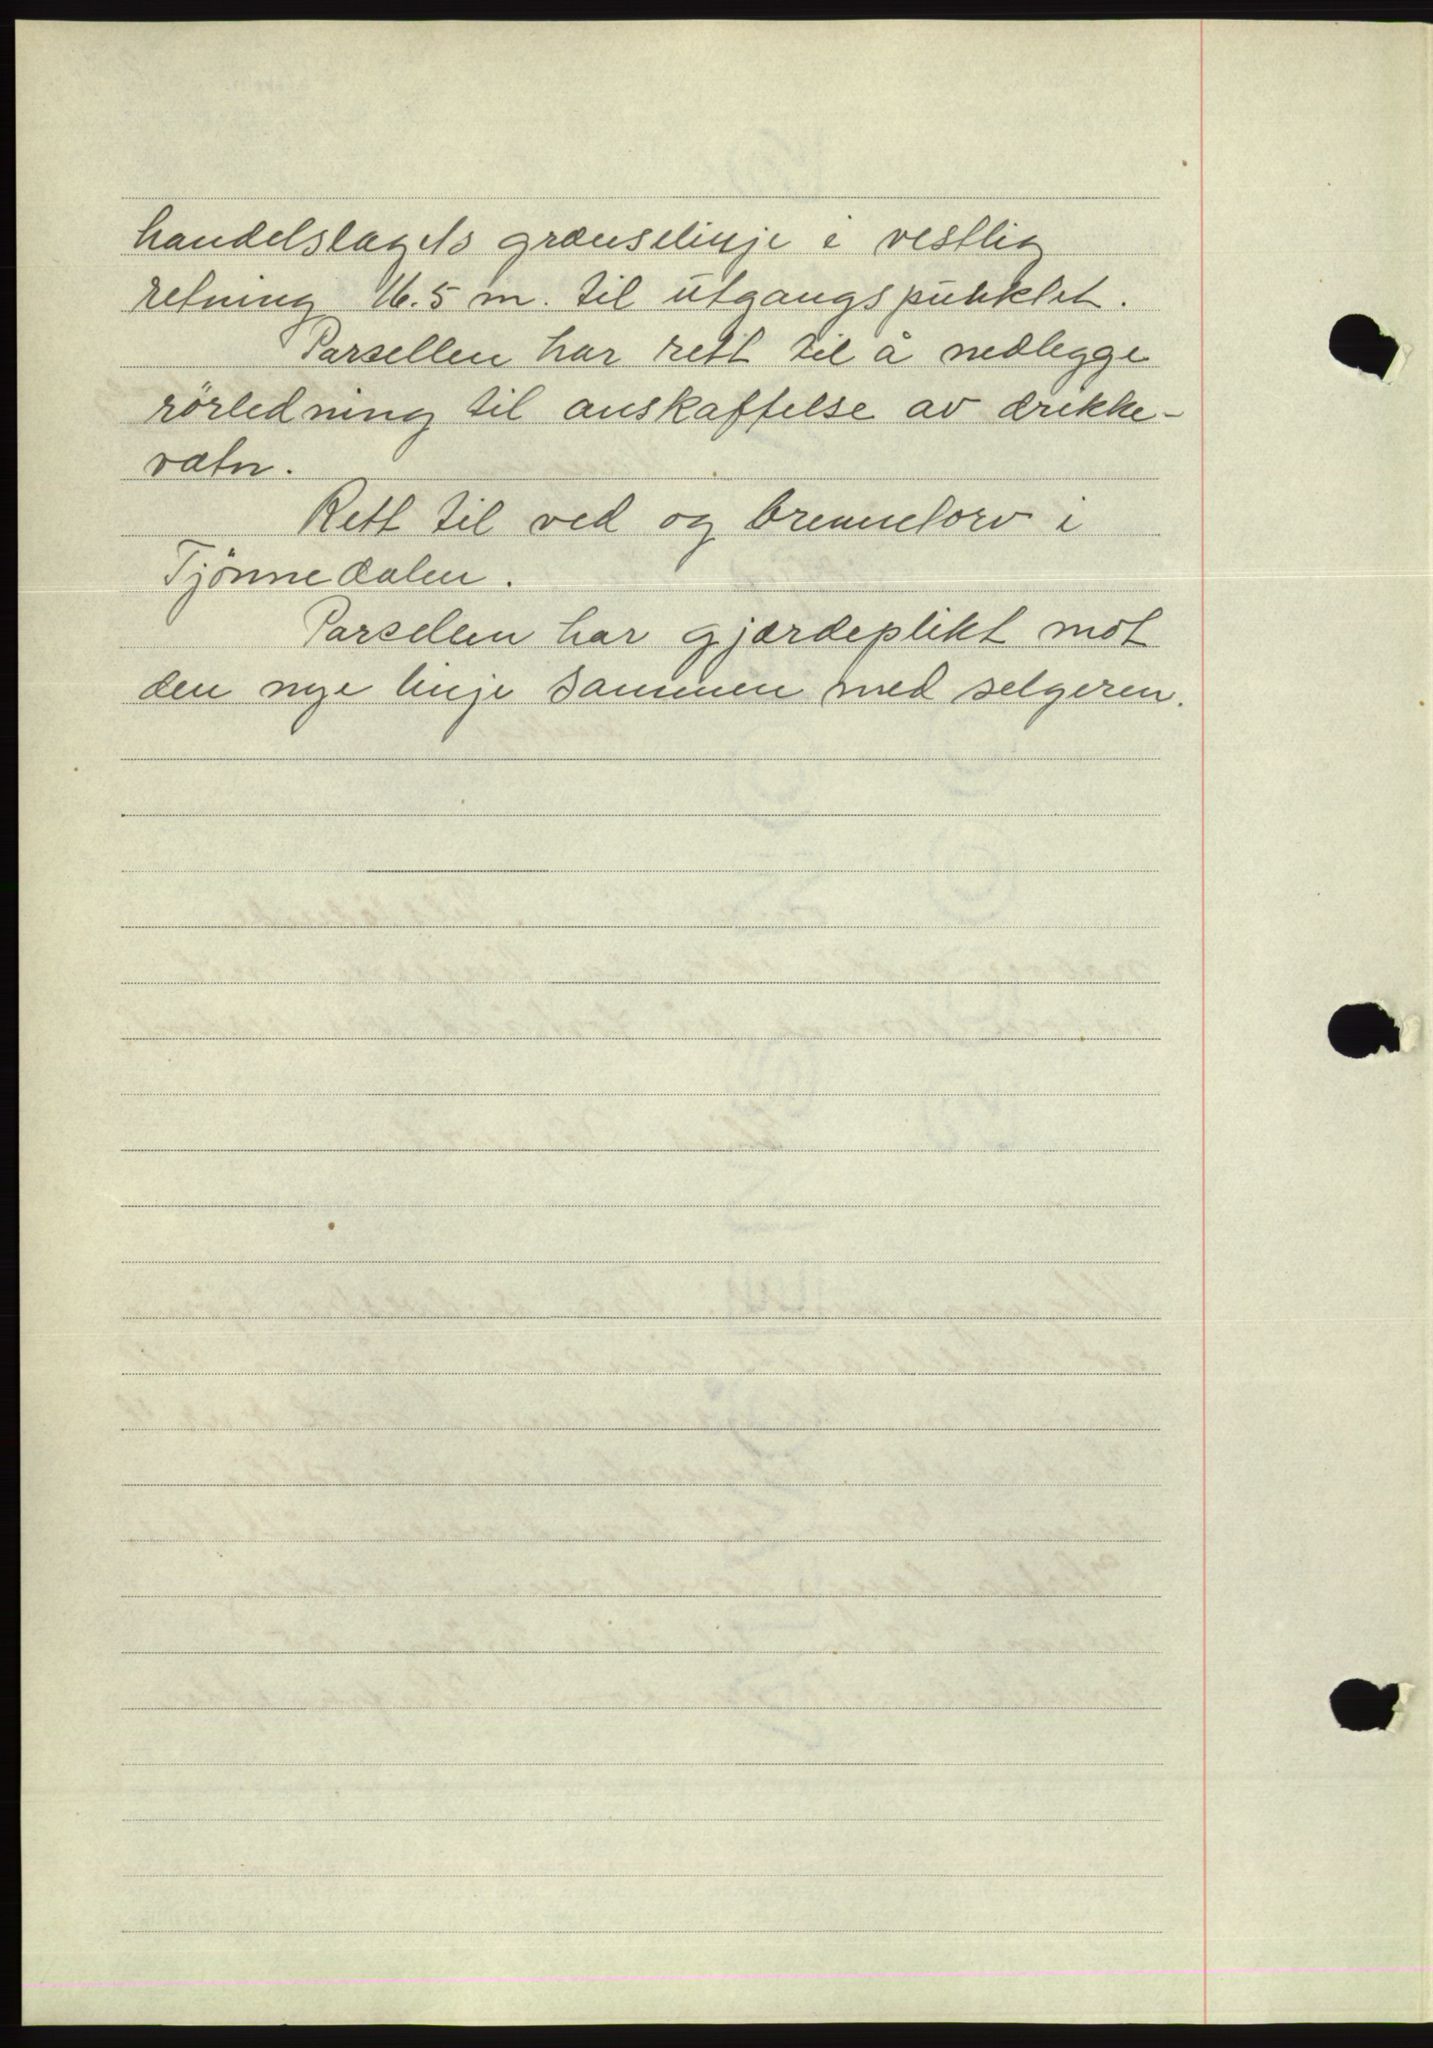 handelslagets grænselinje i vestlig
retning 16.5 m. til utgangspunktet.
Parsellen har rett til å nedlegge
rörledning til anskaffelse av drikke-
vatn.
Rett til ved og brennetorv i
Tjönnedalen.
Parsellen har gjærdeplikt mot
den nye linje sammen med selgeren.